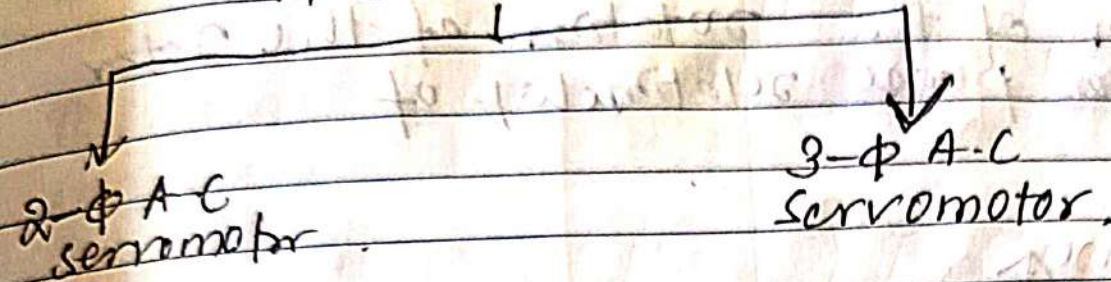 2-ф A-C
servomotor.
3-ф A-C
servomotor.